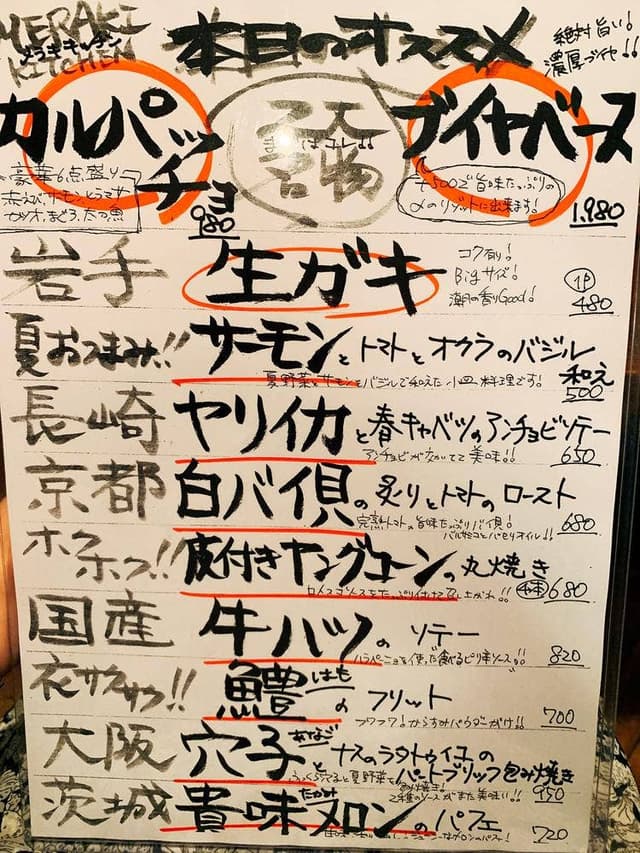 MERAKI KITCHEN
メラキキッチン
本日のオススメ
絶対旨い!
濃厚ブイヤ!!
カルパッチョ
980
豪華6点盛り
赤えび、サーモン
カツオ、まぐろ、たつ魚
まずはコレ!!
二大名物
ブイヤベース
1,980
+500で旨味たっぷりの
〆のリゾットに出来ます!
岩手 生ガキ
コク有り!
Bigサイズ!
潮の香りGood!
1P
480
夏おつまみ!! サーモンとトマトとオクラのバジル和え
夏野菜とサーモンをバジルで和えた小皿料理です!
500
長崎 ヤリイカと春キャベツのアンチョビソテー
アンチョビが効いてて美味!!
650
京都 白バイ貝の炙りとトマトのロースト
完熟トマトの旨味たっぷりバイ貝!
680
ホクホク!! 皮付きヤングコーンの丸焼き
ロメスコソースをたっぷり付けて召し上がれ!!
680
国産 牛ハツのソテー
ハラペーニョを使った食べるピリ辛ソース!!
820
衣サクサク!! 鱧のフリット
はも
フワフワ!からすみパウダーがけ!!
700
大阪 穴子とナスのラタトゥイユのパートブリック包み焼き
あなご
ふっくら穴子と夏野菜を包み焼き!
2種のソースがまた美味い!!
950
茨城 貴味メロンのパフェ
たかみ
720